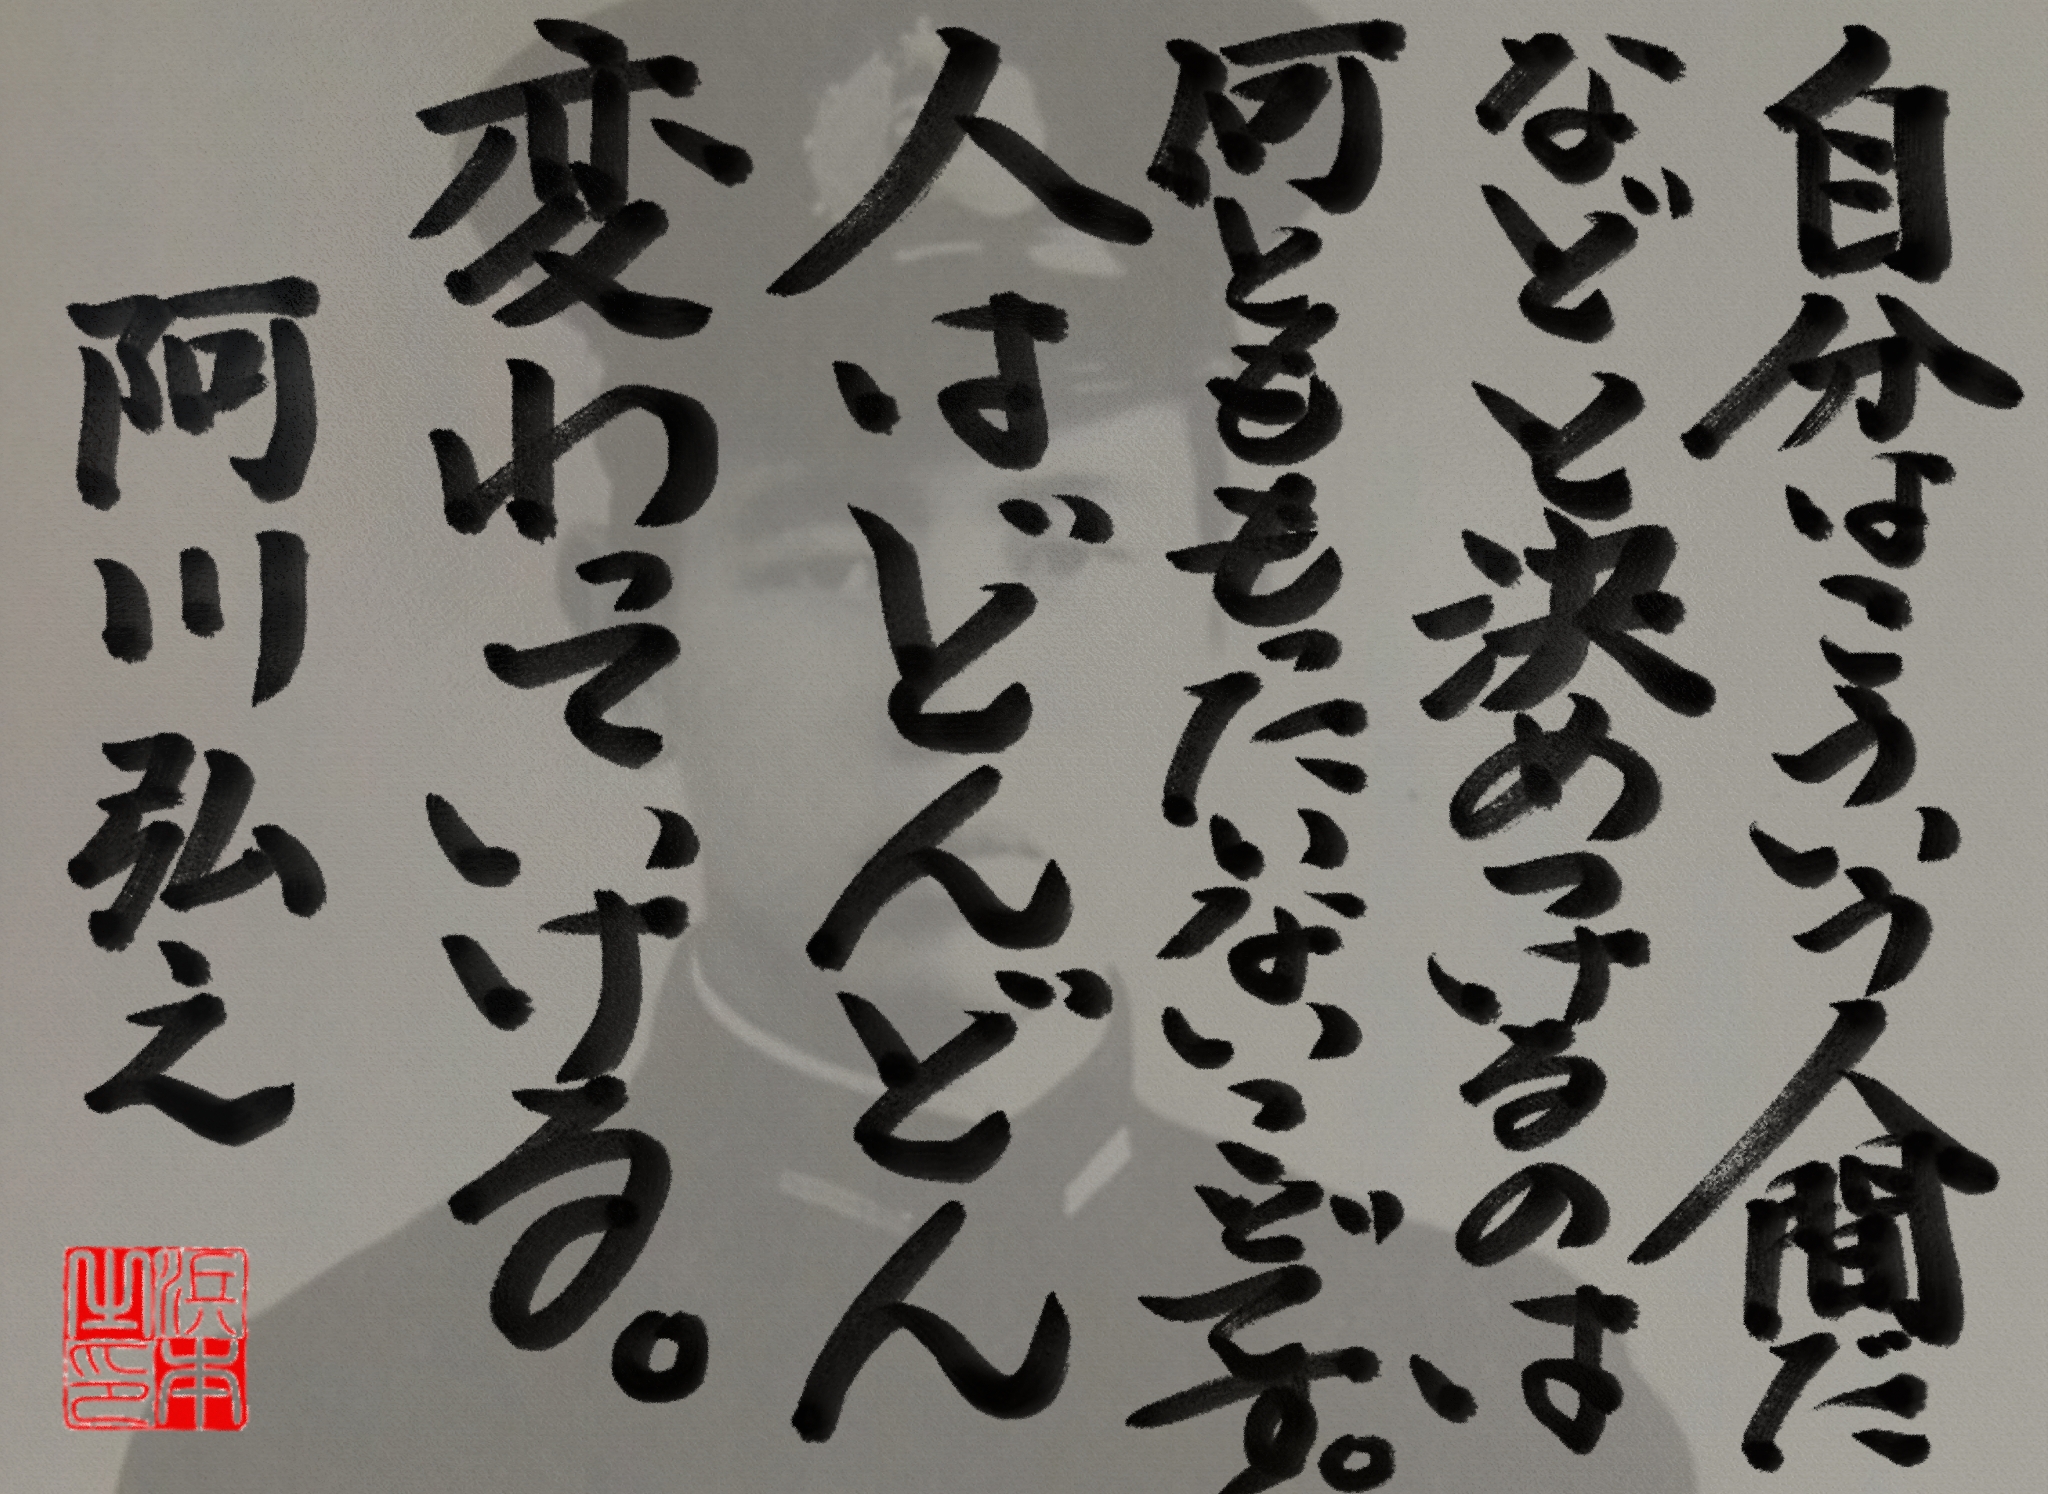 自分はこういう人間だ
などと決めつけるのは
何とももったいないことです。
人はどんどん
変わっていける。
阿川弘之
浜本之印